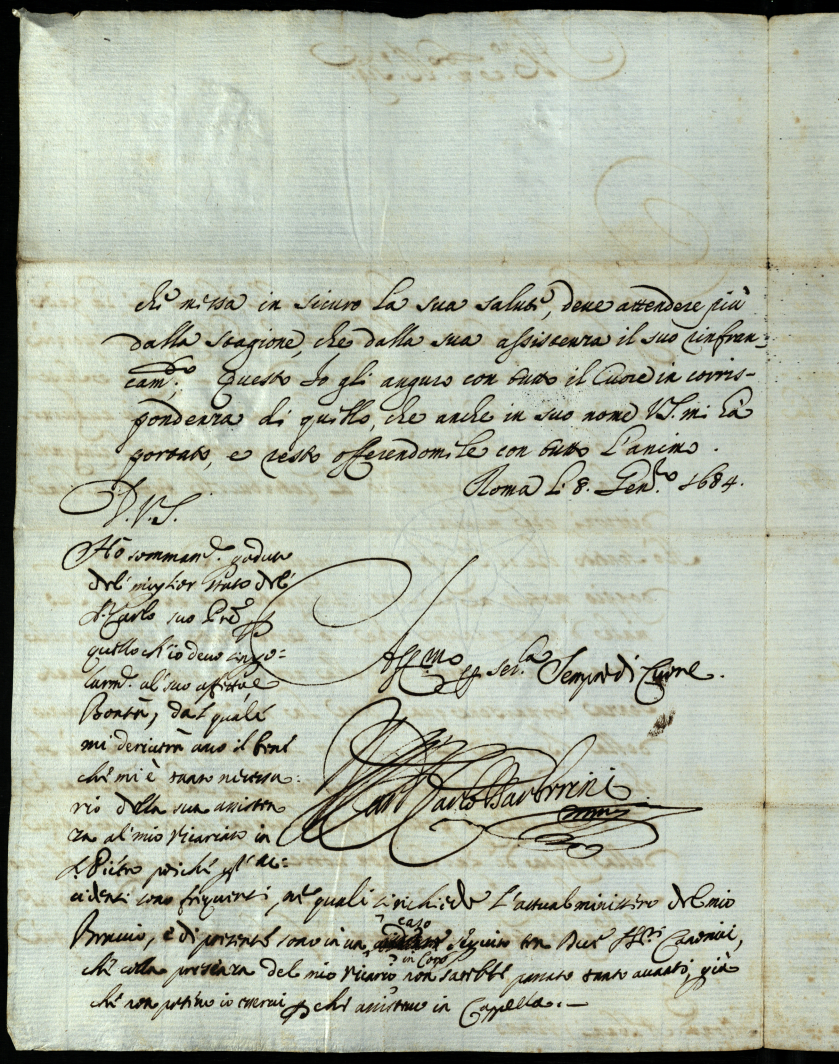 che messa in sicuro la sua salute, deve attendere più
dalla stagione, che dalla sua assistenza il suo rinfran=
cam.to; Questo Io gli auguro con tutto il Cuore in corris-
pondenza di quello, che anche in suo nome V.S. mi hà
portato, e resto offerendomele con tutto l'animo.
Roma li 8. Gen.ro 1684.
D.V.S.
Hò sommam.te goduto
del miglior stato del
S.r Carlo suo P͂re p
quello ch'io devo singo=
larm.te al suo affetto, e
Bontà, dal quale
mi deriverà anco il bene
che mi è tanto necessa=
rio della sua assisten
za al mio Vicariato in
S. Pietro poiché gl' ac=
cidenti sono frequenti, ne quali si richiede l'attual ministero del mio
Braccio, e di presente sono in un caso seguito tra Due SS.ri Canonici,
che colla presenza del mio Vicario in Coro non sarebbe passato tanto avanti, già
che non potevo io esservi p che assistevo in Cappella. —
Aff.mo p ser.la Sempre di Cuore.
Car. Carlo Barberini